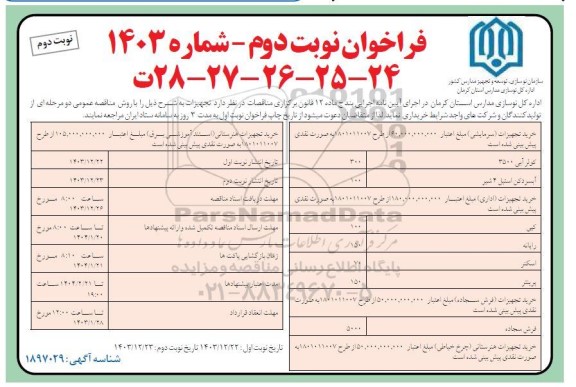 نوبت دوم
فراخوان نوبت دوم - شماره ۱۴۰۳
۲۴-۲۵-۲۶-۲۷-۲۸ت
سازمان نوسازی، توسعه و تجهیز مدارس کشور
اداره کل نوسازی مدارس استان کرمان
اداره کل نوسازی مدارس استان کرمان در اجرای آیین نامه اجرایی بند ج ماده ۱۲ قانون برگزاری مناقصات در نظر دارد تجهیزات به شرح ذیل را با روش مناقصه عمومی دو مرحله ای از
تولیدکنندگان و شرکت های واجد شرایط خریداری نماید لذا از متقاضیان دعوت میشود از تاریخ چاپ فراخوان نوبت اول به مدت ۳ روز به سامانه ستاد ایران مراجعه نمایند.
خرید تجهیزات (سرمایشی) مبلغ اعتبار از طرح ۱۸۰۱۰۱۱۰۰۷ به صورت نقدی
پیش بینی شده است
کولر آبی ۳۵۰۰ ۳۰۰
آبسردکن استیل ۴ شیر
خرید تجهیزات (اداری) مبلغ اعتبار از طرح ۱۸۰۱۰۱۱۰۰۷ به صورت نقدی
پیش بینی شده است
کپی ۱۰۰
رایانه
اسکنر
پرینتر ۱۵۰
خرید تجهیزات (فرش سجاده) مبلغ اعتبار ۵۰,۰۰۰,۰۰۰,۰۰۰ از طرح ۱۸۰۱۰۱۱۰۰۷ به صورت
نقدی پیش بینی شده است
فرش سجاده ۵۰۰۰
خرید تجهیزات هنرستانی (چرخ خیاطی) مبلغ اعتبار ۵۰,۰۰۰,۰۰۰,۰۰۰ از طرح ۱۸۰۱۰۱۱۰۰۷ به
صورت نقدی پیش بینی شده است
خرید تجهیزات هنرستانی (استند آموزشی برق) مبلغ اعتبار ۱۰۵,۰۰۰,۰۰۰,۰۰۰ از طرح
۱۸۰۱۰۱۱۰۰۷ به صورت نقدی پیش بینی شده است
تاریخ انتشار نوبت اول ۱۴۰۳/۱۲/۲۲
تاریخ انتشار نوبت دوم ۱۴۰۳/۱۲/۲۳
مهلت دریافت اسناد مناقصه ساعت ۸:۰۰ مورخ
۱۴۰۳/۱۲/۲۶
مهلت ارسال اسناد مناقصه تکمیل شده وارائه پیشنهادها تا ساعت ۸:۰۰ مورخ
۱۴۰۴/۱/۲۰
زمان بازگشایی پاکت ها ساعت ۸:۱۰ مورخ
۱۴۰۴/۱/۲۱
مدت اعتبار پیشنهادها تا ۱۴۰۴/۲/۲۱ ساعت
۱۹:۰۰
مهلت انعقاد قرارداد تا ساعت ۱۴:۰۰ مورخ
تاریخ نوبت اول: ۱۴۰۳/۱۲/۲۲ تاریخ نوبت دوم: ۱۴۰۳/۱۲/۲۳
شناسه آگهی: ۱۸۹۷۰۲۹
ParsNamadData
پایگاه اطلاع رسانی مناقصه و مزایده
۰۲۱-۸۸۳۴۹۶۷۰-۵